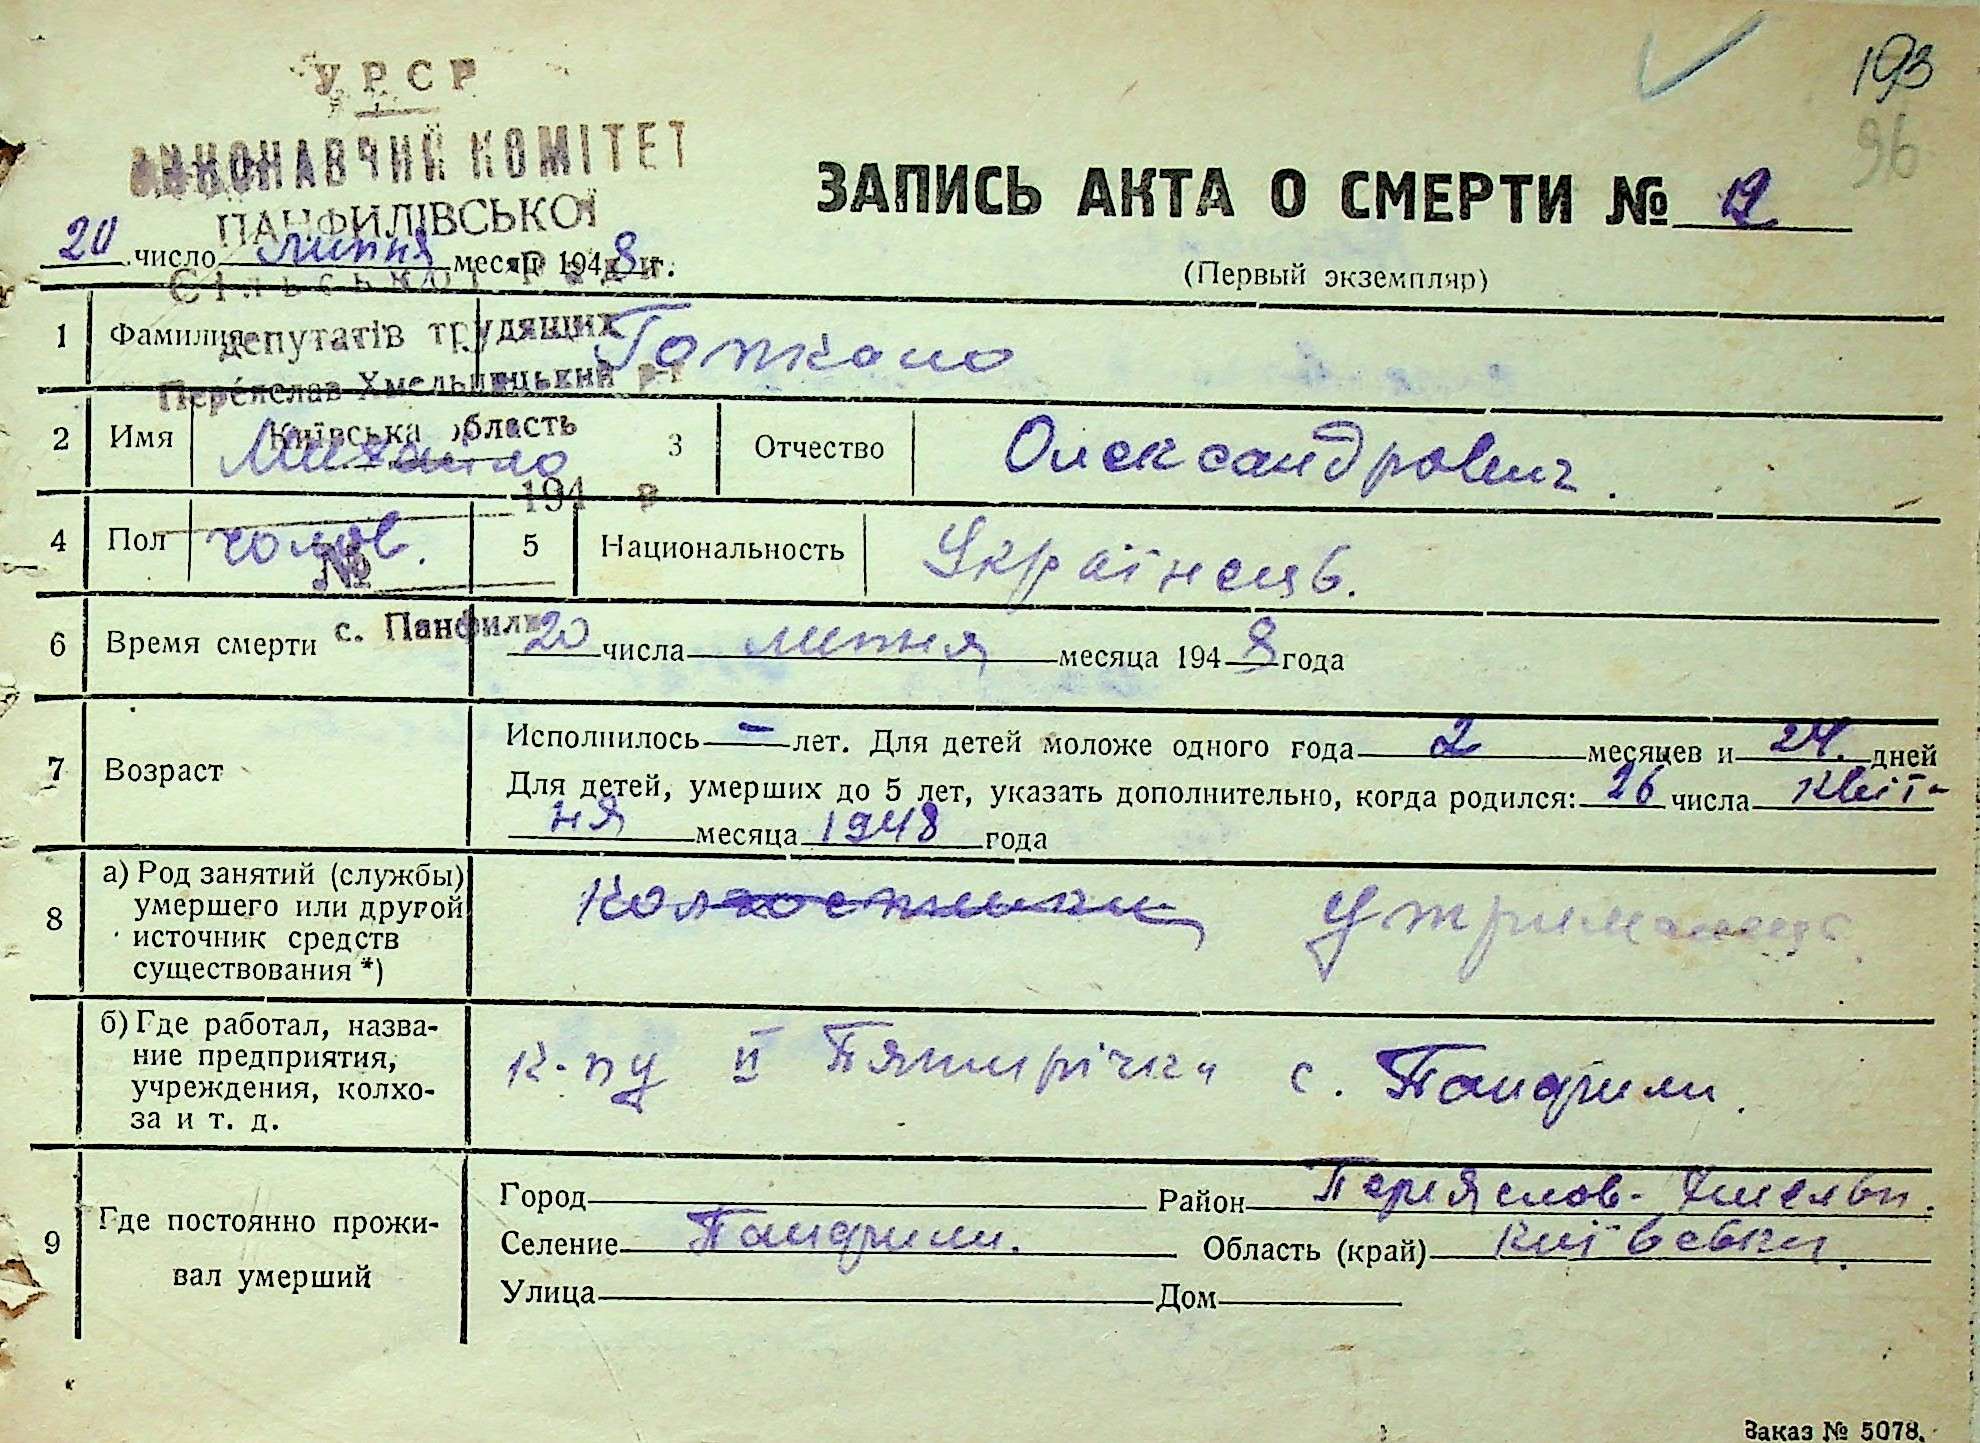 УРСР
ВИКОНАВЧИЙ КОМІТЕТ
ПАНФИЛІВСЬКОЇ
Сільської Ради
депутатів трудящих
Переяслав-Хмельницький р-н
Київська область
194 р
№
с. Панфили
193
96
ЗАПИСЬ АКТА О СМЕРТИ № 12
20 число липня месяц 1948 г.
(Первый экземпляр)
1 Фамилия
2 Имя Михайло 3 Отчество Олександрович.
4 Пол чолов. 5 Национальность Українець.
6 Время смерти 20 числа липня месяца 1948 года
7 Возраст Исполнилось — лет. Для детей моложе одного года 2 месяцев и 24. дней
Для детей, умерших до 5 лет, указать дополнительно, когда родился: 26 числа квіт-
ня месяца 1948 года
8 а) Род занятий (службы)
умершего или другой
источник средств
существования *)
утриманець.
б) Где работал, назва-
ние предприятия,
учреждения, колхо-
за и т. д.
к-пу II Пятирічка с. Панфили.
9 Где постоянно прожи-
вал умерший
Город Район Переяслов-Хмельн.
Селение Панфили. Область (край) Київська.
Улица Дом
Заказ № 5078.